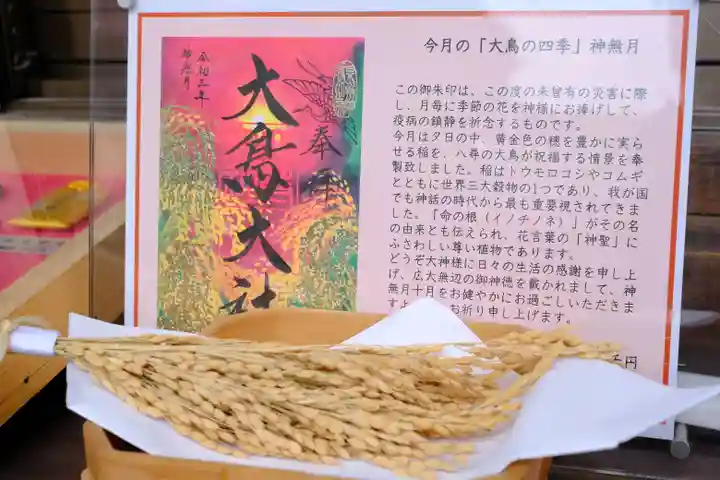 今月の「大鳥の四季」神無月
この御朱印は、この度の未曾有の災害に際
し、月毎に季節の花を神様にお捧げして、
疫病の鎮静を祈念するものです。
今月は夕日の中、黄金色の穂を豊かに実ら
せる稲を、八尋の大鳥が祝福する情景を奉
製致しました。稲はトウモロコシやコムギ
とともに世界三大穀物の1つであり、我が国
でも神話の時代から最も重要視されてきま
した。「命の根(イノチノネ)」がその名
の由来とも伝えられ、花言葉の「神聖」に
ふさわしい尊い植物であります。
どうぞ大神様に日々の生活の感謝を申し上
げ、広大無辺の御神徳を戴かれまして、神
無月十月をお健やかにお過ごしいただきま
すよ お祈り申し上げます。
円
奉
大鳥大社
令和三年
神無月